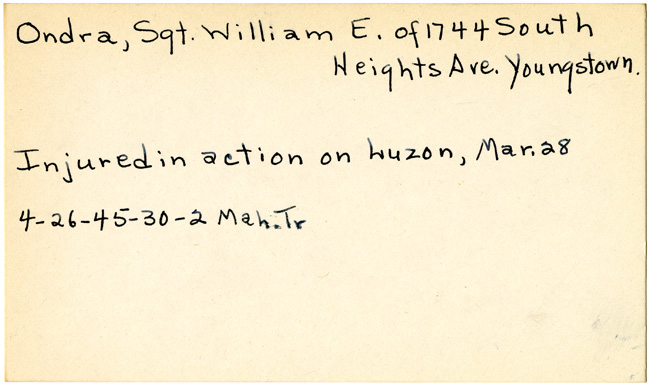 Ondra, Sgt. William E. of 1744 South
Heights Ave. Youngstown.
Injured in action on Luzon, Mar. 28
4-26-45-30-2 Mah. Tr